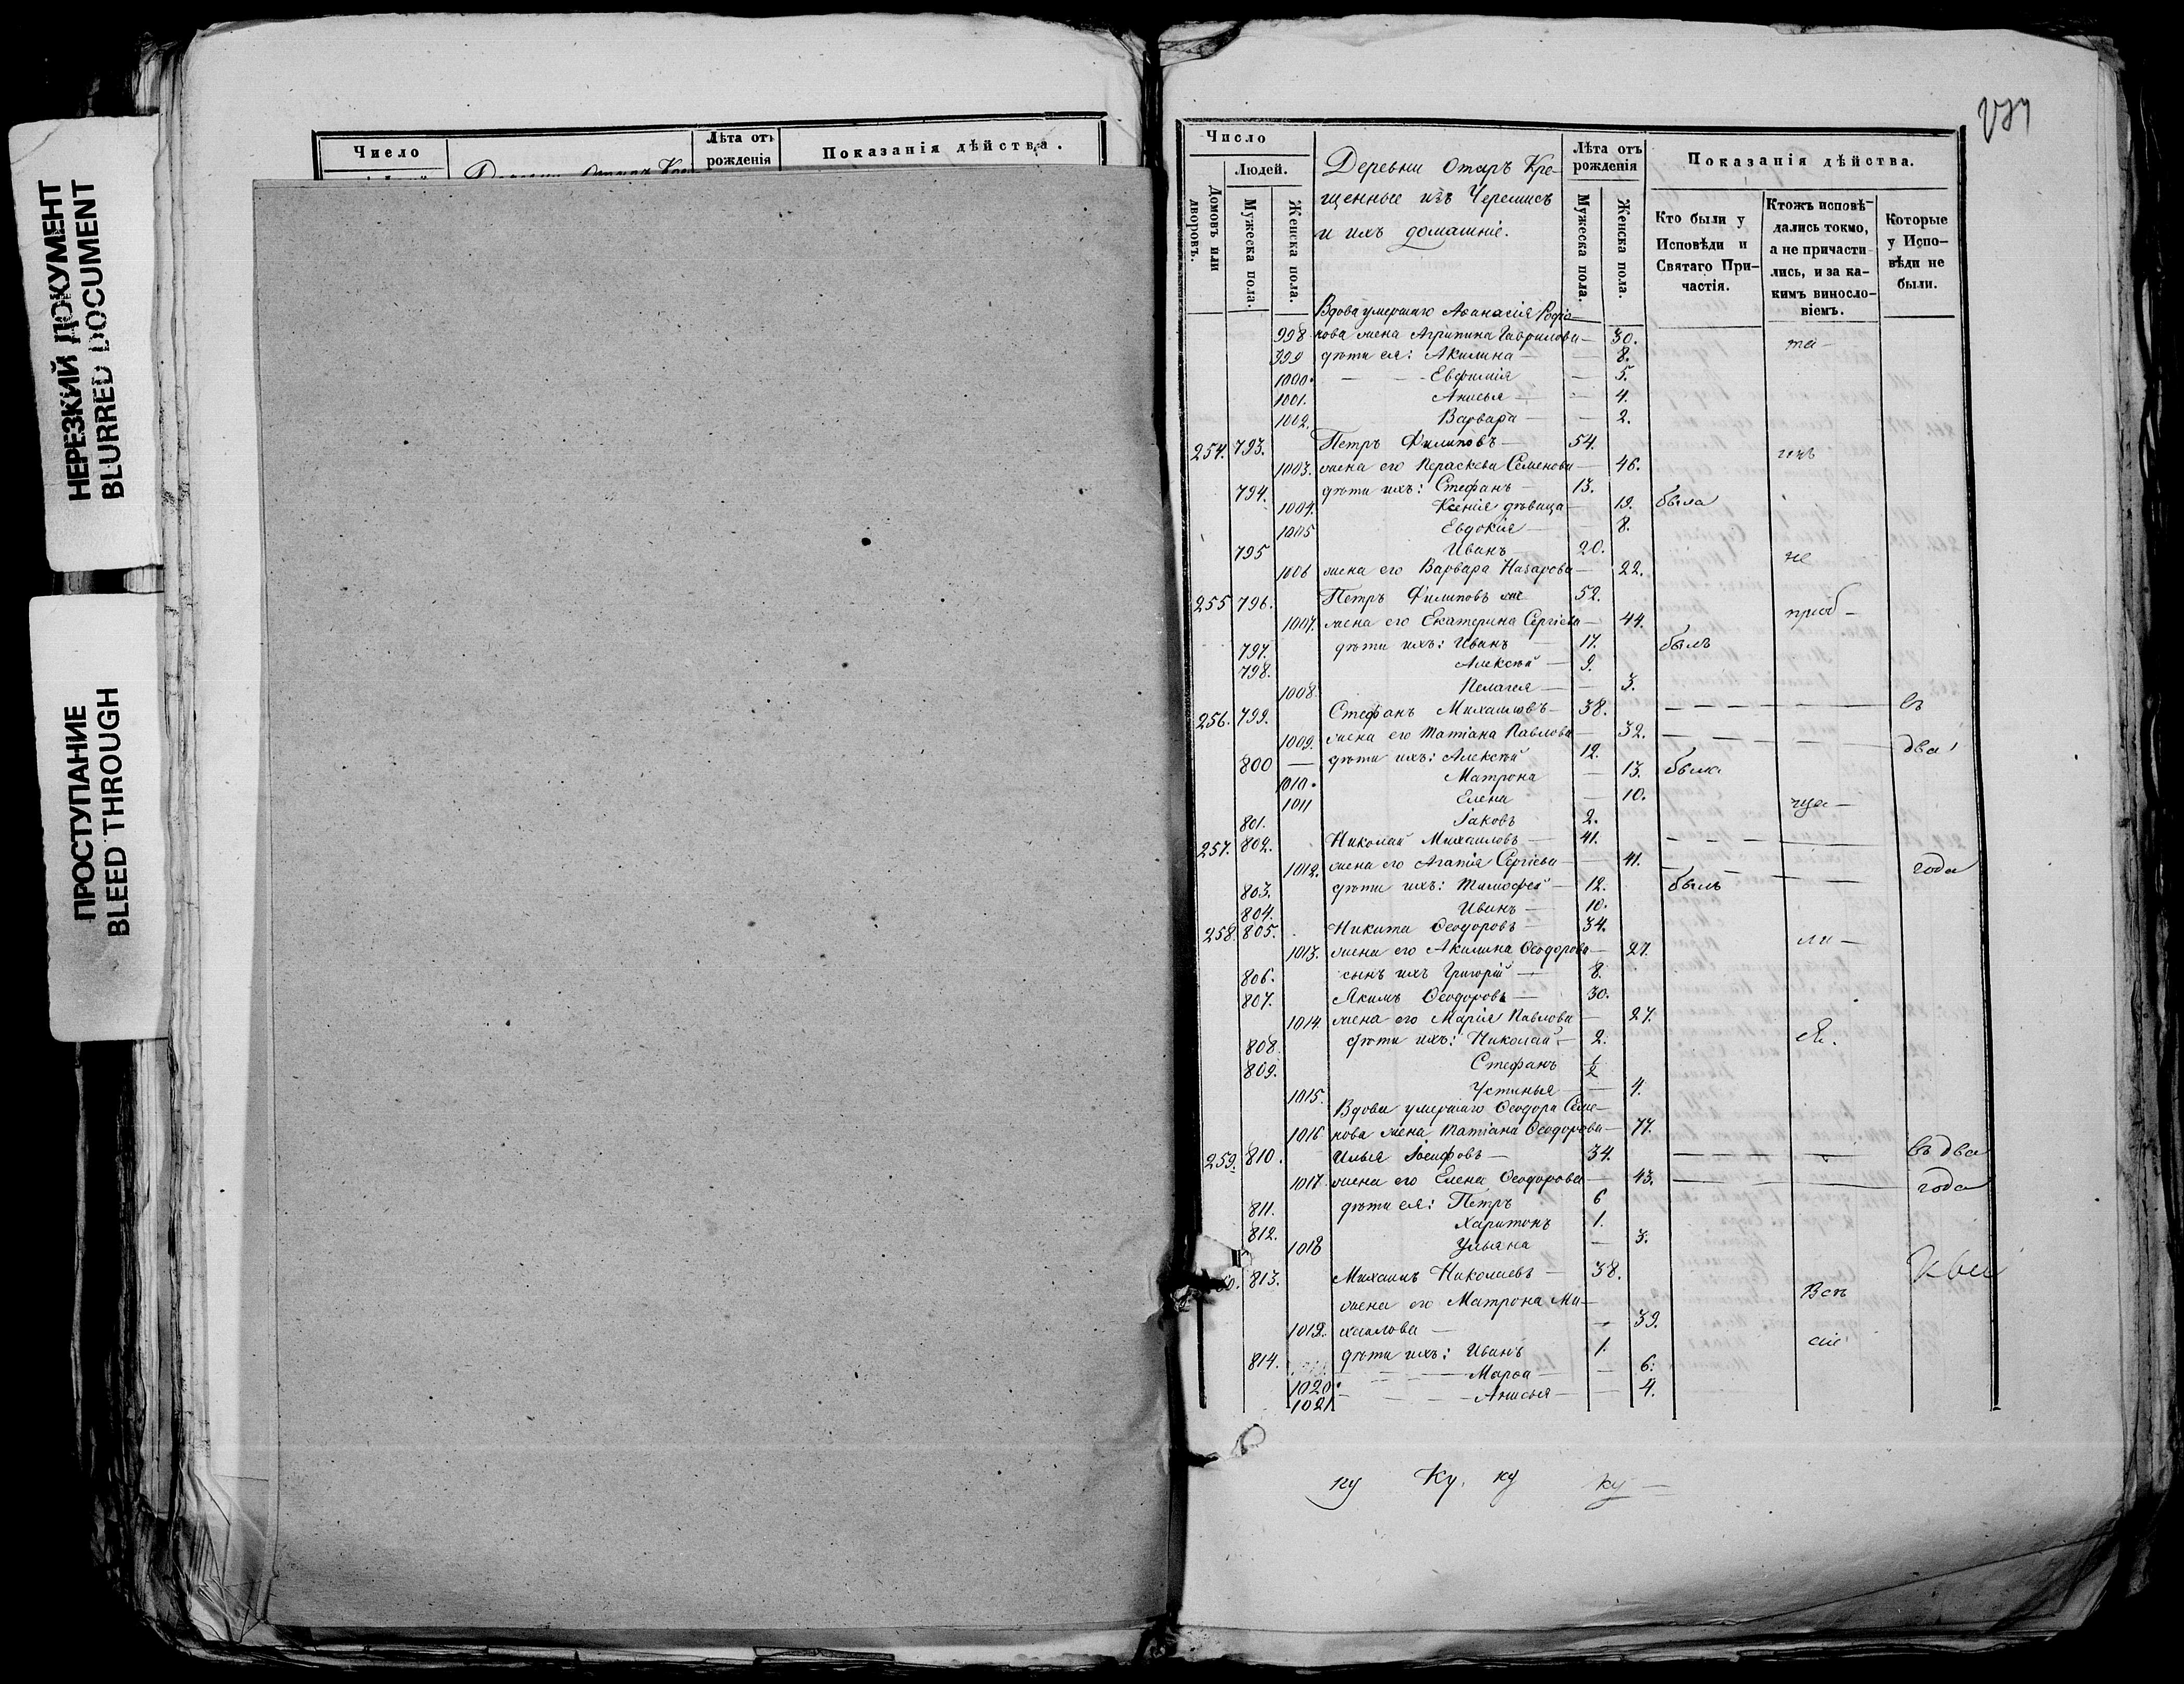 НЕРЕЗКИЙ ДОКУМЕНТ
BLURRED DOCUMENT
ПРОСТУПАНИЕ
BLEED THROUGH
Число
Лѣта отъ рожденія
Показанія дѣйства.
Число
Людей.
Домовъ или дворовъ.
Мужеска пола.
Женска пола.
Деревни Отаръ Кре-
щенные изъ Черемисъ
и ихъ домашніе.
Лѣта отъ рожденія
Мужеска пола.
Женска пола.
Показанія дѣйства.
Кто были у Исповѣди и Святаго Причастія.
Ктожъ исповѣдались токмо, а не причастились, и за какимъ винословіемъ.
Которые у Исповѣди не были.
Вдова умершаго Аѳанасія Родіо-
998 нова жена Агрипина Гаврилова — 30.
999 дѣти ея: Акилина — 8.
1000. — Евфимія — 5.
1001. Анисья — 4.
1002. Варвара — 2.
254. 793. Петръ Филиповъ — 54.
1003. жена его Параскева Семенова — 46.
794. дѣти ихъ: Стефанъ — 13.
1004. Ксенія дѣвица — 19. была
1005 Евдокія — 8.
795 Иванъ 20. не
1006 жена его Варвара Назарова — 22.
255 796. Петръ Филиповъ 52.
1007. жена его Екатерина Сергіева — 44. приоб-
797. дѣти ихъ: Иванъ — 17. былъ
798. Алексѣй — 9.
1008. Пелагея — 3.
256. 799. Стефанъ Михаиловъ — 38. въ
1009. жена его Татіана Павлова — 32. два
800 — дѣти ихъ: Алексѣй 12.
1010. Матрона — 13. была
1011 Елена — 10. ща-
801. Іаковъ 2.
257. 802. Николай Михаиловъ — 41.
1012. жена его Агапія Сергіева — 41. года
803. дѣти ихъ: Тимофей — 12. былъ
804. Иванъ — 10.
258. 805. Никита Ѳеодоровъ — 34.
1013. жена его Акилина Ѳеодорова — 27. ли-
806. сынъ ихъ Григорій — 8.
807. Якимъ Ѳеодоровъ — 30.
1014. жена его Марія Павлова — 27.
808. дѣти ихъ: Николай — 2.
809. Стефанъ ½
1015. Устинья — 4.
Вдова умершаго Ѳеодора Семе-
1016 нова жена Татіана Ѳеодорова — 77.
259. 810. Илья Іосифовъ — 34. въ два
1017. жена его Елена Ѳеодорова — 43. года
811. дѣти ея: Петръ 6
812. Харитонъ 1.
1018 Ульяна — 3.
813. Михаилъ Николаевъ — 38.
жена его Матрона Ми-
1019. хаилова — 39.
814. дѣти ихъ: Иванъ 1.
1020. Марѳа — 6.
1021 Анисья — 4.
ку Ку. ку ку —